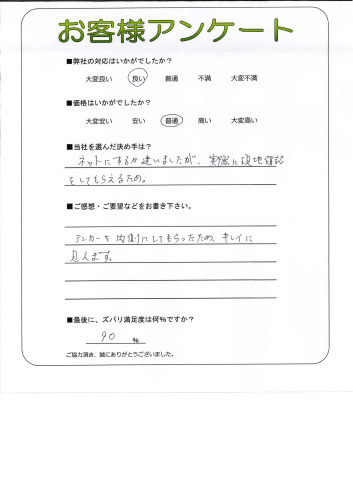 お客様アンケート
■弊社の対応はいかがでしたか？
大変良い 良い 普通 不満 大変不満
■価格はいかがでしたか？
大変安い 安い 普通 高い 大変高い
■当社を選んだ決め手は？
ネットにするか迷いましたが、実際に現地確認
をしてもらえるため。
■ご感想・ご要望などをお書き下さい。
アンカーを内側にしてもらったため キレイに
見えます。
■最後に、ズバリ満足度は何％ですか？
90 ％
ご協力頂き、誠にありがとうございました。